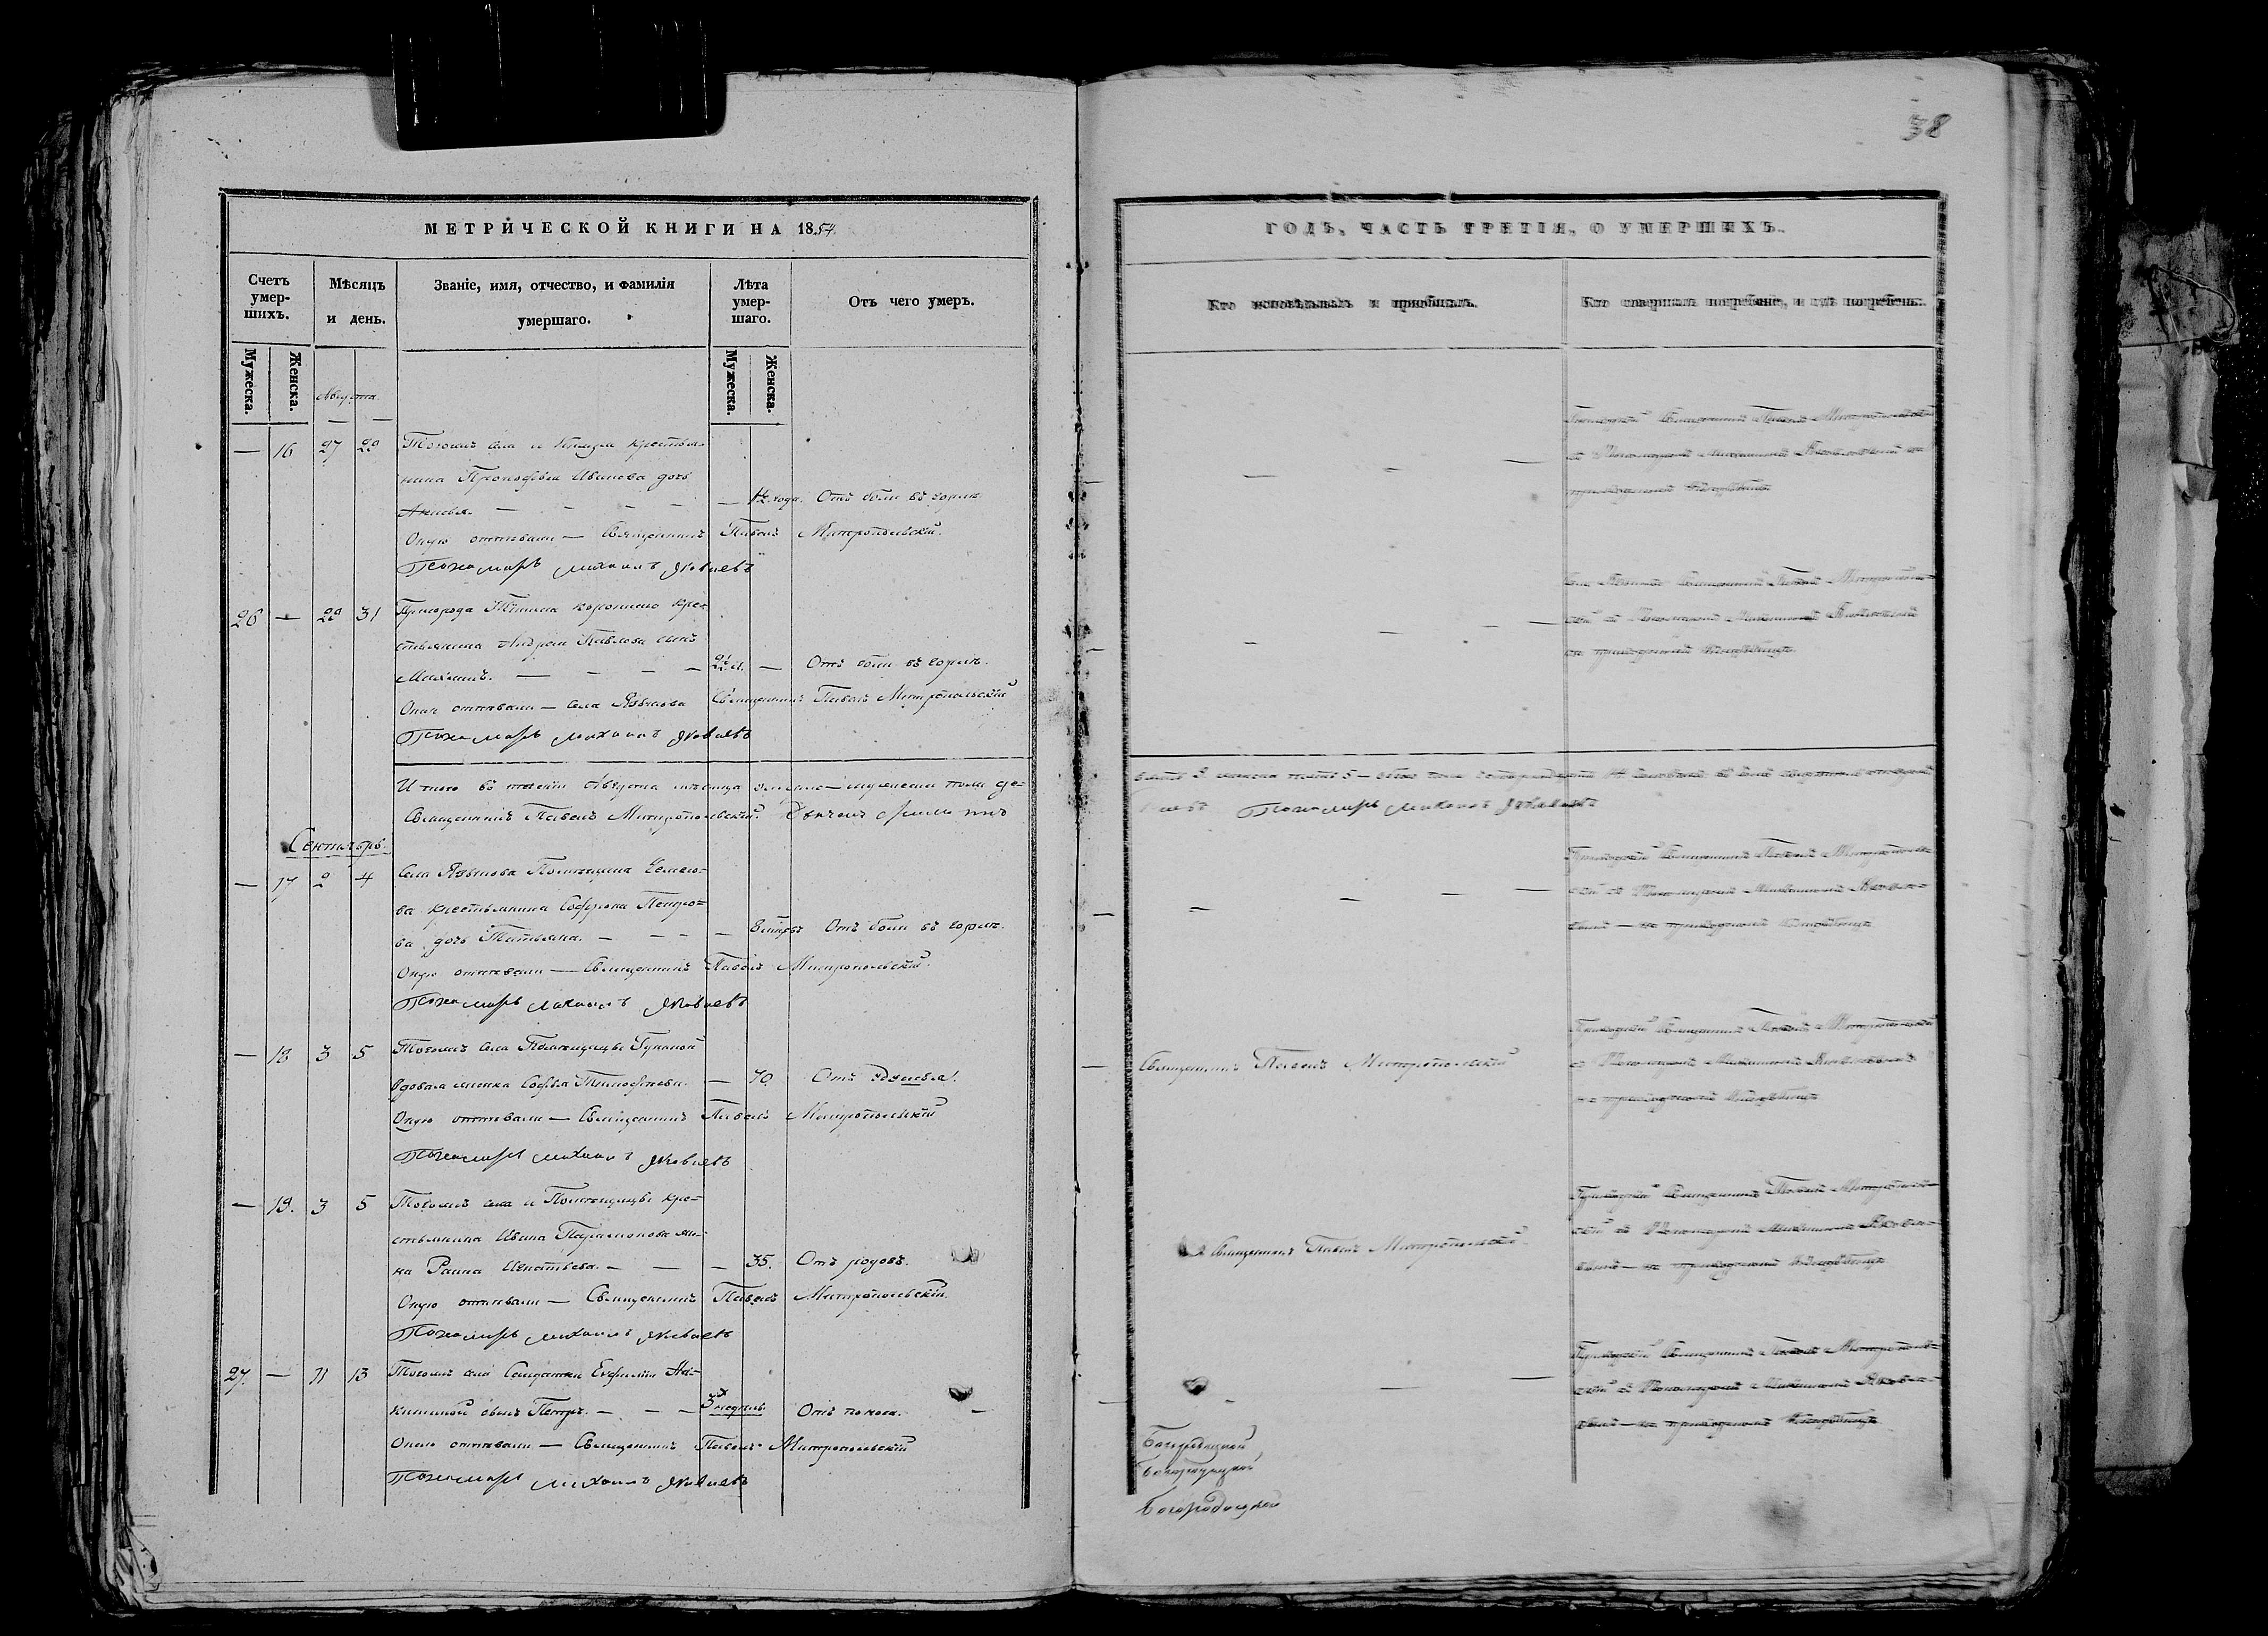 38
МЕТРИЧЕСКОЙ КНИГИ НА 1854
Счетъ умер-шихъ.
Мѣсяцъ и день.
Званіе, имя, отчество, и фамилія умершаго.
Лѣта умер-шаго.
Отъ чего умеръ.
Мужеска.
Женска.
Мужеска.
Женска.
Августа
— 16 27 29 Тогожъ села и крестья-
нина Прокофья Иванова дочь
— года. Отъ боли въ горлѣ
Оную отпѣвали — Священникъ Павелъ Митропольскій.
Пономарь Михаилъ Яковлевъ
26 — 29 31 Пригорода крес-
тьянина Андрея Павлова сынъ
— Отъ боли въ горлѣ.
Онаго отпѣвали — села Священникъ Павелъ Митропольскій
Пономарь Михаилъ Яковлевъ
Итого въ теченіи Августа мѣсяца умерло — мужеска пола де-
Священникъ Павелъ Митропольскій.
Сентябрь.
— 17 2 4 Села Помѣщика
ва крестьянина Софрона Петро-
ва дочь Татьяна. — Отъ боли въ горлѣ.
Оную отпѣвали — Священникъ Павелъ Митропольскій.
Пономарь Михаилъ Яковлевъ
— 18 3 5 Тогожъ села Помѣщицы
вдова Софья Тимофеева. — 70. Отъ удушья.
Оную отпѣвали — Священникъ Павелъ Митропольскій
Пономарь Михаилъ Яковлевъ
— 19. 3 5 Тогожъ села и Помѣщицы кре-
стьянина Ивана Парамонова же-
на Раина Игнатьева. — — 35. Отъ родовъ.
Оную отпѣвали — Священникъ Павелъ Митропольскій.
Пономарь Михаилъ Яковлевъ
27. — 11 13 Тогожъ села Солдатки Евфиміи Ни-
китиной сынъ Петръ. — 3 недѣль. Отъ поноса.
Онаго отпѣвали — Священникъ Павелъ Митропольскій
Пономарь Михаилъ Яковлевъ
ГОДЪ, ЧАСТЬ ТРЕТІЯ, О УМЕРШИХЪ.
Кто исповѣдывалъ и пріобщалъ.
Кто совершалъ погребеніе, и гдѣ погребены.
Приходскій Священникъ Павелъ Митропольскій
съ Пономаремъ Михаиломъ Яковлевымъ на
приходскомъ кладбищѣ
Священникъ Павелъ Митрополь-
скій съ Пономаремъ Михаиломъ Яковлевымъ
на приходскомъ кладбищѣ
Пономарь Михаилъ Яковлевъ
Приходскій Священникъ Павелъ Митрополь-
скій съ Пономаремъ Михаиломъ Яковле-
вымъ — на приходскомъ кладбищѣ
Священникъ Павелъ Митропольскій
Приходскій Священникъ Павелъ Митропольскій
съ Пономаремъ Михаиломъ Яковлевымъ
на приходскомъ кладбищѣ
Священникъ Павелъ Митропольскій
Приходскій Священникъ Павелъ Митрополь-
скій съ Пономаремъ Михаиломъ Яковле-
вымъ — на приходскомъ кладбищѣ
Приходскій Священникъ Павелъ Митрополь-
скій съ Пономаремъ Михаиломъ Яковле-
вымъ — на приходскомъ кладбищѣ
Богородицкой
Богородицкой
Богородицкой